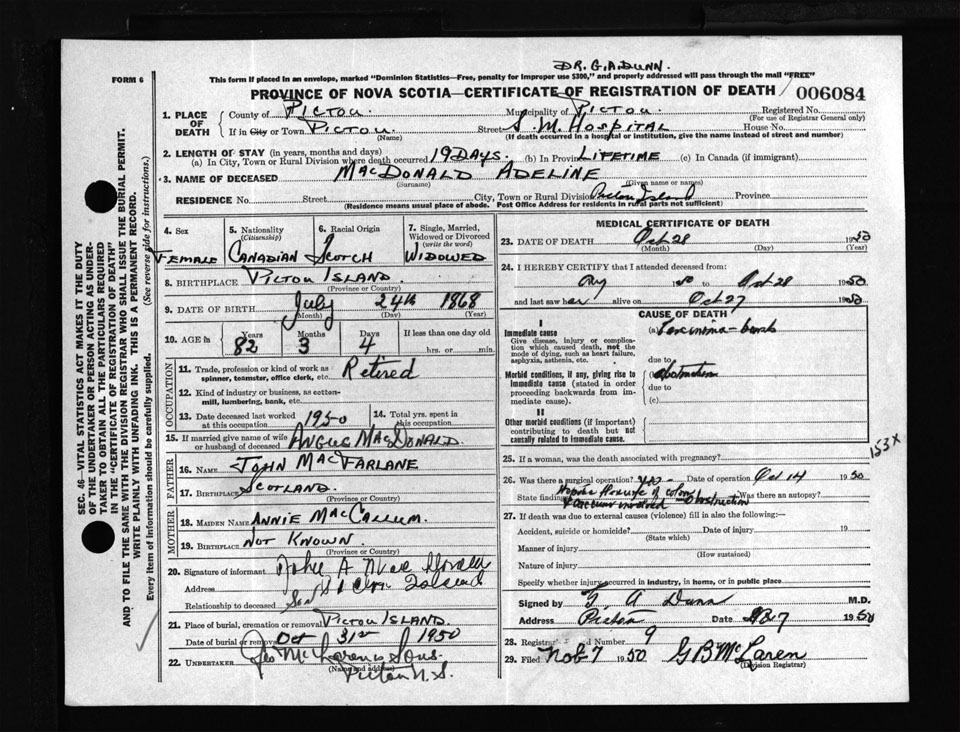 DR. G.A. DUNN.
FORM 6
This form if placed in an envelope, marked "Dominion Statistics—Free, penalty for improper use $300," and properly addressed will pass through the mail "FREE"
PROVINCE OF NOVA SCOTIA—CERTIFICATE OF REGISTRATION OF DEATH 006084
1. PLACE OF DEATH
County of PICTOU. Municipality of PICTOU. Registered No.
(For use of Registrar General only)
If in City or Town PICTOU. Street S. M. HOSPITAL House No.
(If death occurred in a hospital or institution, give the name instead of street and number)
2. LENGTH OF STAY (in years, months and days)
(a) In City, Town or Rural Division where death occurred 19 DAYS. (b) In Province LIFETIME (c) In Canada (if immigrant)
3. NAME OF DECEASED MACDONALD ADELINE
(Surname) (Given name or names)
RESIDENCE No. Street City, Town or Rural Division Pictou Island Province
(Residence means usual place of abode. Post Office Address for residents in rural parts not sufficient)
4. Sex FEMALE
5. Nationality (Citizenship) CANADIAN
6. Racial Origin SCOTCH
7. Single, Married, Widowed or Divorced (write the word) WIDOWED
8. BIRTHPLACE PICTOU ISLAND.
(Province or Country)
9. DATE OF BIRTH July 24th 1868
(Month) (Day) (Year)
10. AGE in Years 82 Months 3 Days 4 If less than one day old
hrs. or min.
OCCUPATION
11. Trade, profession or kind of work as spinner, teamster, office clerk, etc. Retired
12. Kind of industry or business, as cotton-mill, lumbering, bank, etc.
13. Date deceased last worked at this occupation 1950
14. Total yrs. spent in this occupation
15. If married give name of wife or husband of deceased ANGUS MACDONALD.
FATHER
16. NAME JOHN MACFARLANE
17. BIRTHPLACE SCOTLAND.
(Province or Country)
MOTHER
18. MAIDEN NAME ANNIE MACCALLUM.
19. BIRTHPLACE NOT KNOWN.
(Province or Country)
20. Signature of informant John A MacDonald
Address Pictou Island
Relationship to deceased Son
21. Place of burial, cremation or removal PICTOU ISLAND.
Date of burial or removal Oct 31st 1950
22. UNDERTAKER Geo McLaren & Sons.
(Name and address)
Pictou N.S.
MEDICAL CERTIFICATE OF DEATH
23. DATE OF DEATH Oct 28 1950
(Month) (Day) (Year)
24. I HEREBY CERTIFY that I attended deceased from:
1950 to Oct-28 1950
and last saw her alive on Oct 27 1950
CAUSE OF DEATH
I
Immediate cause
Give disease, injury or complication which caused death, not the mode of dying, such as heart failure, asphyxia, asthenia, etc.
(a) Carcinoma - bowel
due to
Morbid conditions, if any, giving rise to immediate cause (stated in order proceeding backwards from immediate cause).
(b) obstruction
due to
(c)
II
Other morbid conditions (if important) contributing to death but not causally related to immediate cause.
153X
25. If a woman, was the death associated with pregnancy?
26. Was there a surgical operation? yes - Date of operation Oct 14 1950
State findings Hepatic flexure of colon obstruction Was there an autopsy?
27. If death was due to external causes (violence) fill in also the following:—
Accident, suicide or homicide? Date of injury 19
(State which)
Manner of injury
(How sustained)
Nature of injury
Specify whether injury occurred in industry, in home, or in public place
Signed by G. A Dunn M.D.
Address Pictou Date 1950
28. Registrar's Record Number 9
29. Filed Nob 7 1950 G B McLaren
(Division Registrar)
SEC. 46—VITAL STATISTICS ACT MAKES IT THE DUTY
OF THE UNDERTAKER OR PERSON ACTING AS UNDER-
TAKER TO OBTAIN ALL THE PARTICULARS REQUIRED
IN THE "CERTIFICATE OF REGISTRATION OF DEATH"
AND TO FILE THE SAME WITH THE DIVISION REGISTRAR WHO SHALL ISSUE THE BURIAL PERMIT.
WRITE PLAINLY WITH UNFADING INK. THIS IS A PERMANENT RECORD.
Every item of information should be carefully supplied. (See reverse side for instructions.)